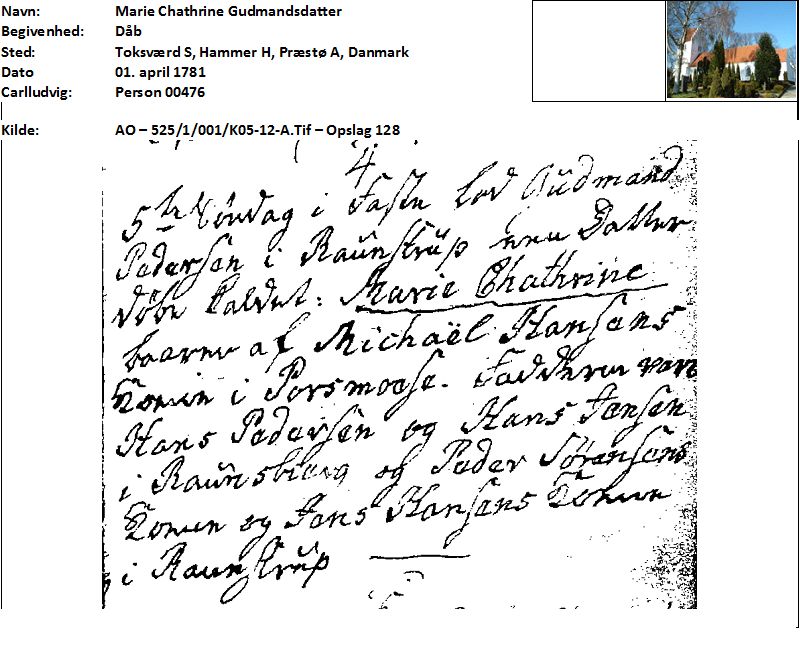 Navn: Marie Chathrine Gudmandsdatter
Begivenhed: Dåb
Sted: Toksværd S, Hammer H, Præstø A, Danmark
Dato 01. april 1781
Carlludvig: Person 00476
Kilde: AO – 525/1/001/K05-12-A.Tif – Opslag 128
4
5te Søndag i Fasten lod Gudmand
Pedersen i Raunstrup sin Datter
døbe kaldet: Marie Chathrine
baaren af Michaël Hansens
Konen i Porsmose. Fadderne vare
Hans Pedersen og Hans Jensen
i Raunsbierg og Peder Sørensens
Konen og Jens Hansens Konen
i Raunstrup